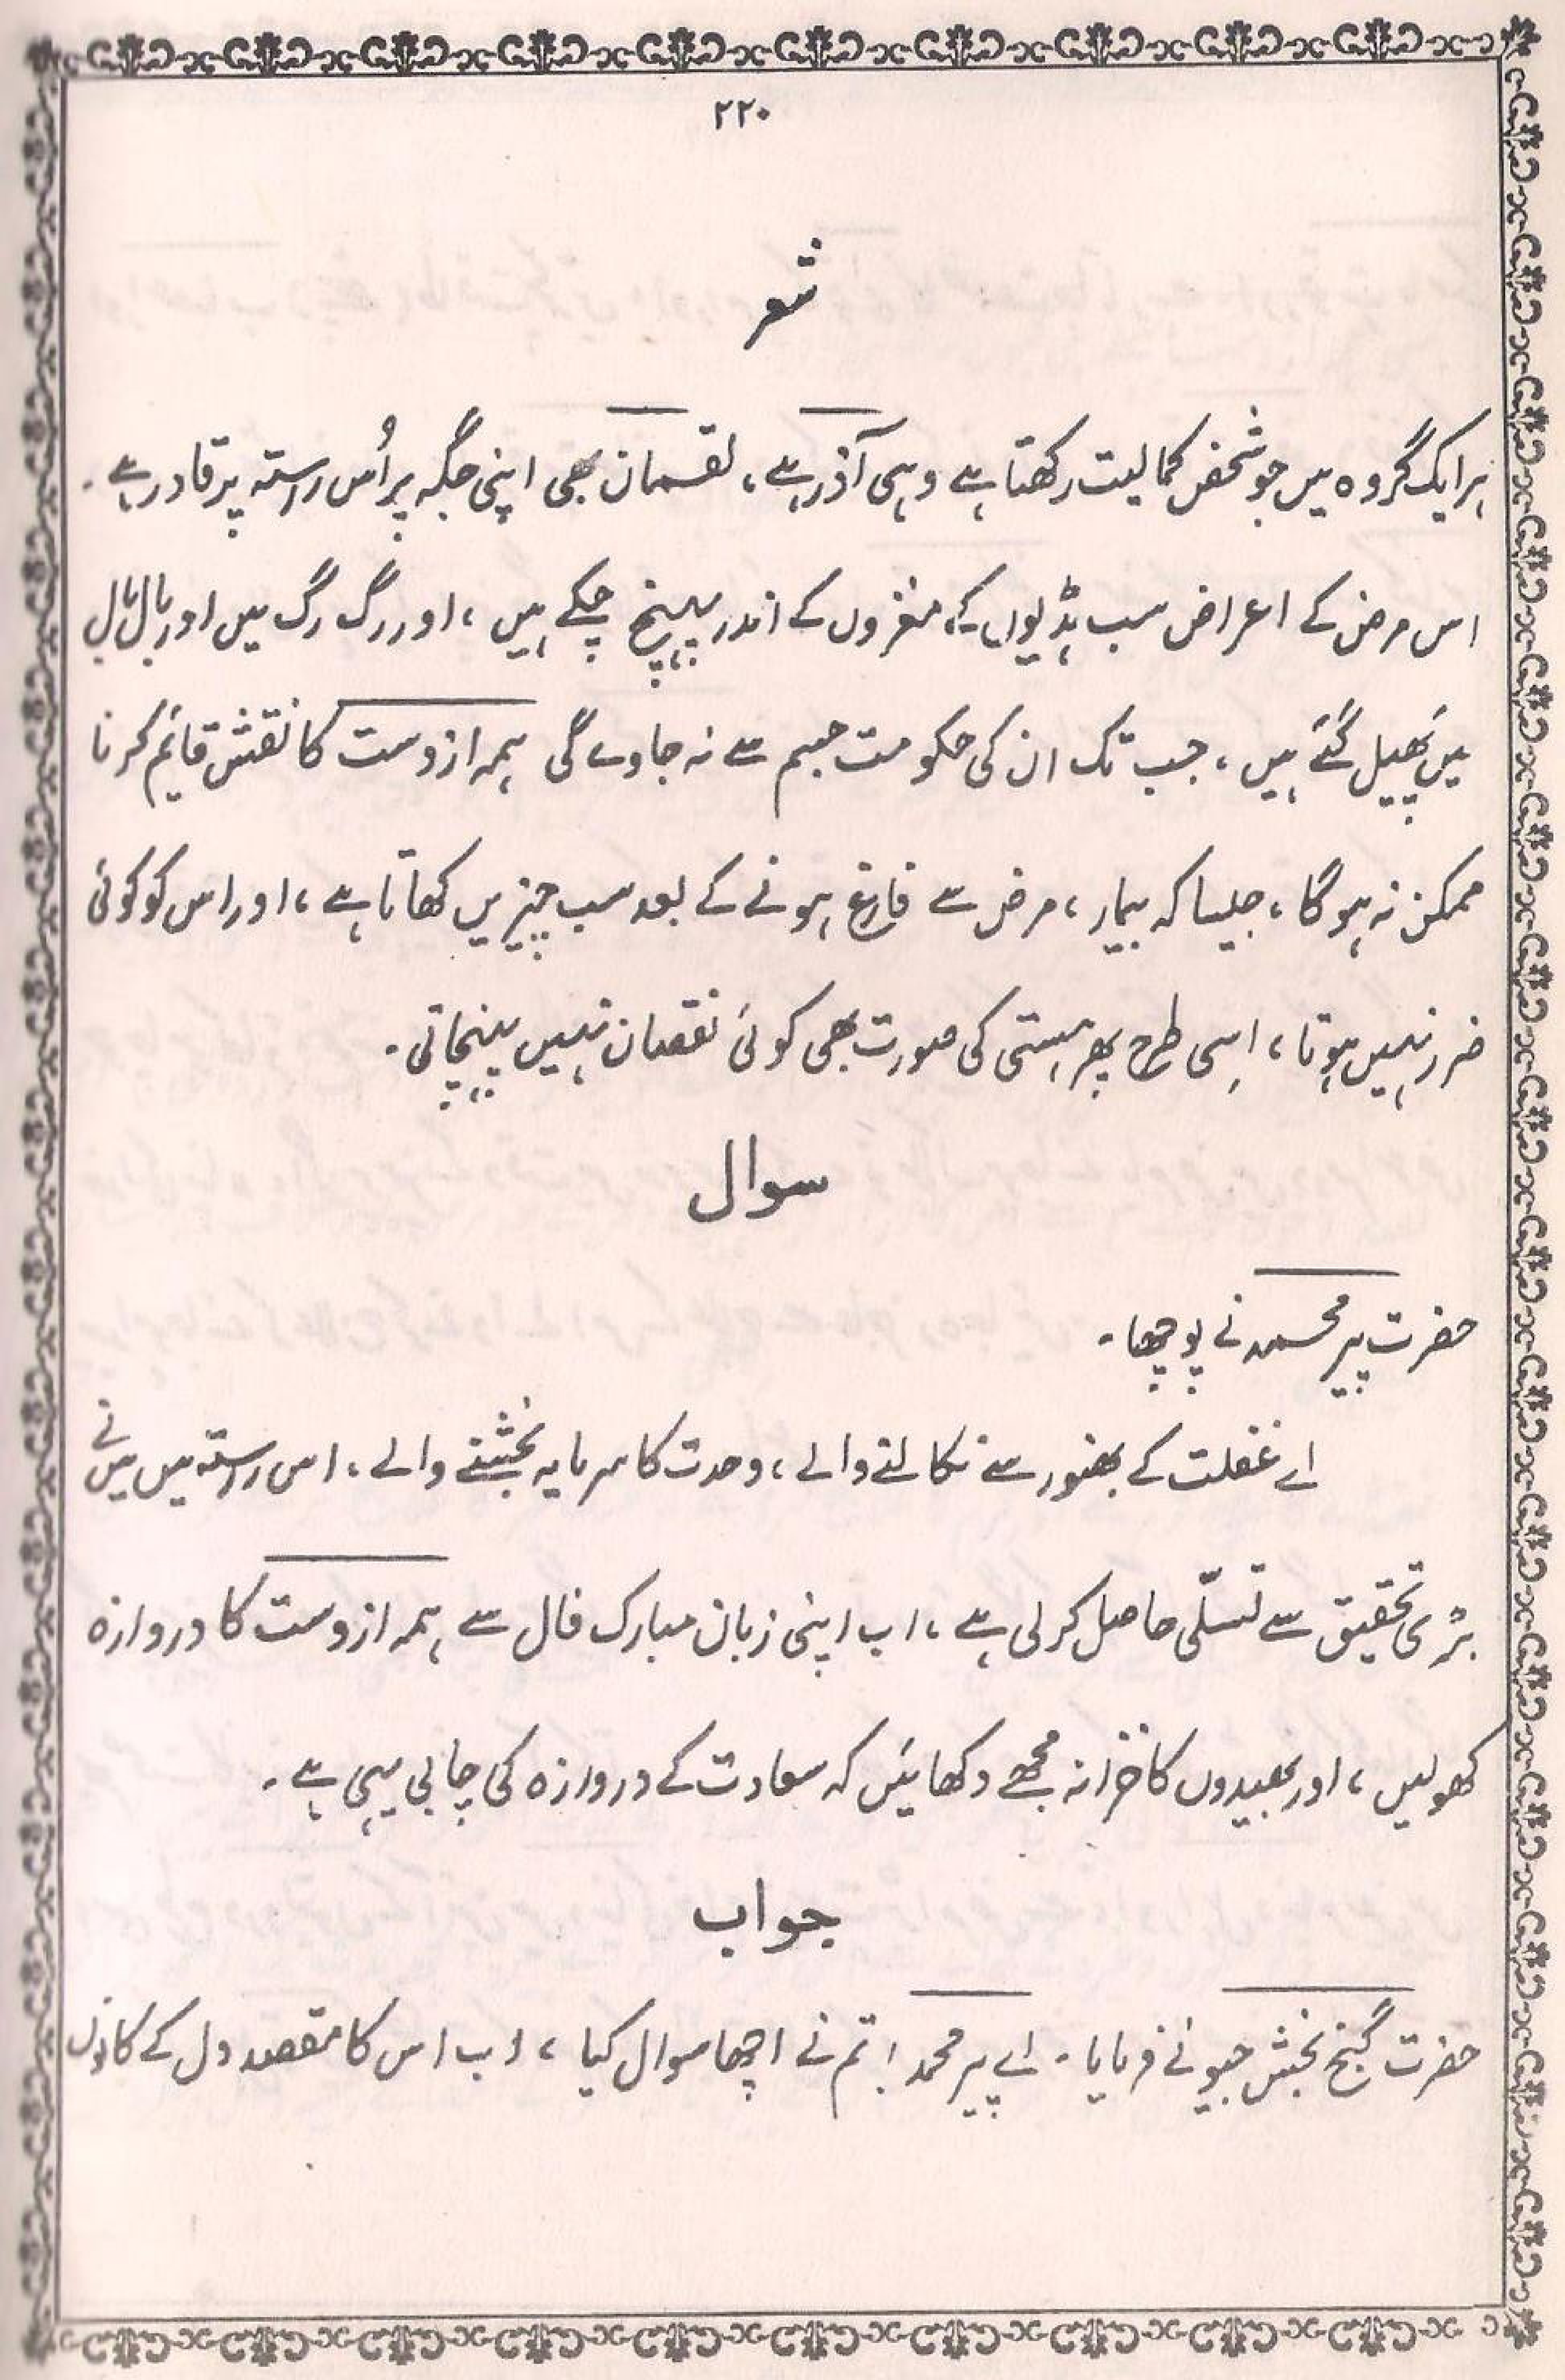 ۲۲۰
شعر
ہر ایک گروہ میں جو شخص کمالیت رکھتا ہے وہی آذر ہے، لقمان بھی اپنی جگہ پر اُس راستہ پر قادر ہے۔
اس مرض کے اعراض سب ہڈیوں کے مغزوں کے اندر پہنچ چکے ہیں، اور رگ رگ میں اور بال بال
میں پھیل گئے ہیں، جب تک ان کی حکومت جسم سے نہ جاوے گی ہمہ ازوست کا نقش قائم کرنا
ممکن نہ ہوگا، جیسا کہ بیمار، مرض سے فارغ ہونے کے بعد سب چیزیں کھاتا ہے، اور اس کو کوئی
ضرر نہیں ہوتا، اِسی طرح پھر ہستی کی صورت بھی کوئی نقصان نہیں پہنچاتی۔
سوال
حضرت پیر محمد نے پوچھا۔
اے غفلت کے بھنور سے نکالنے والے، وحدت کا سرمایہ بخشنے والے، اس راستہ میں میں نے
بڑی تحقیق سے تسلّی حاصل کر لی ہے، اب اپنی زبان مبارک فال سے ہمہ ازوست کا دروازہ
کھولیں، اور بھیدوں کا خزانہ مجھے دکھائیں کہ سعادت کے دروازہ کی چابی یہی ہے۔
جواب
حضرت گنج بخش جیو نے فرمایا۔ اے پیر محمد! تم نے اچھا سوال کیا، اب اس کا مقصد دل کے کانوں